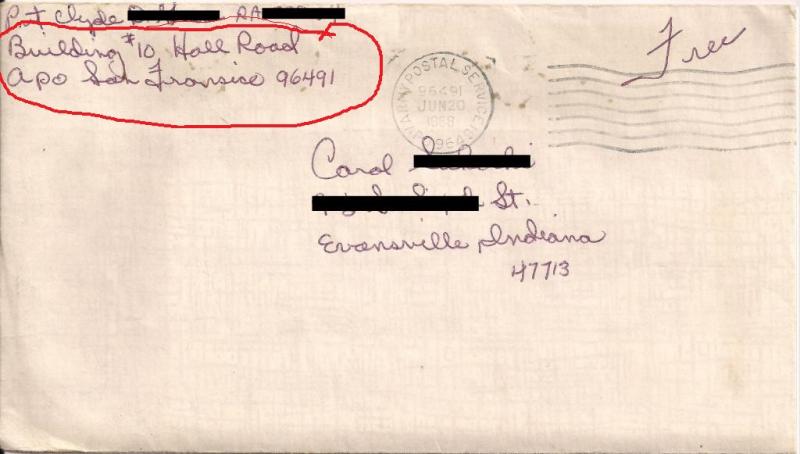 Pvt Clyde RA
Building #10 Hall Road
Apo San Fransisco 96491
Free
ARMY POSTAL SERVICE
96491
JUN 20
1968
APO 96491
Carol
St.
Evansville Indiana
47713